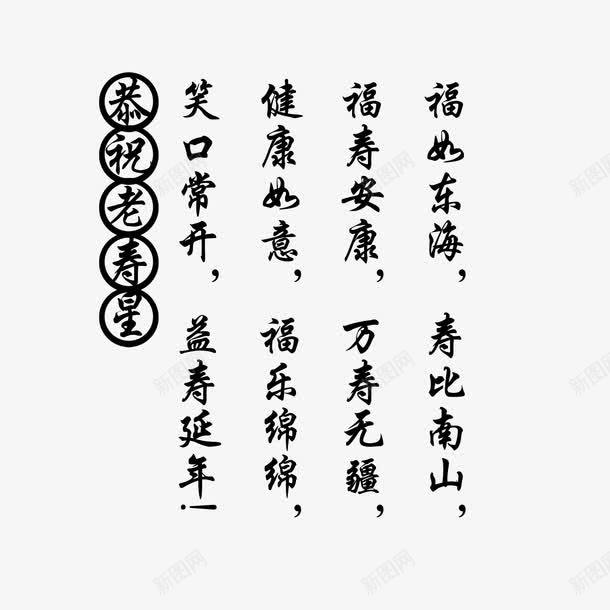 福如东海，寿比南山，
福寿安康，万寿无疆，
健康如意，福乐绵绵，
笑口常开，益寿延年！
恭祝老寿星
新图网